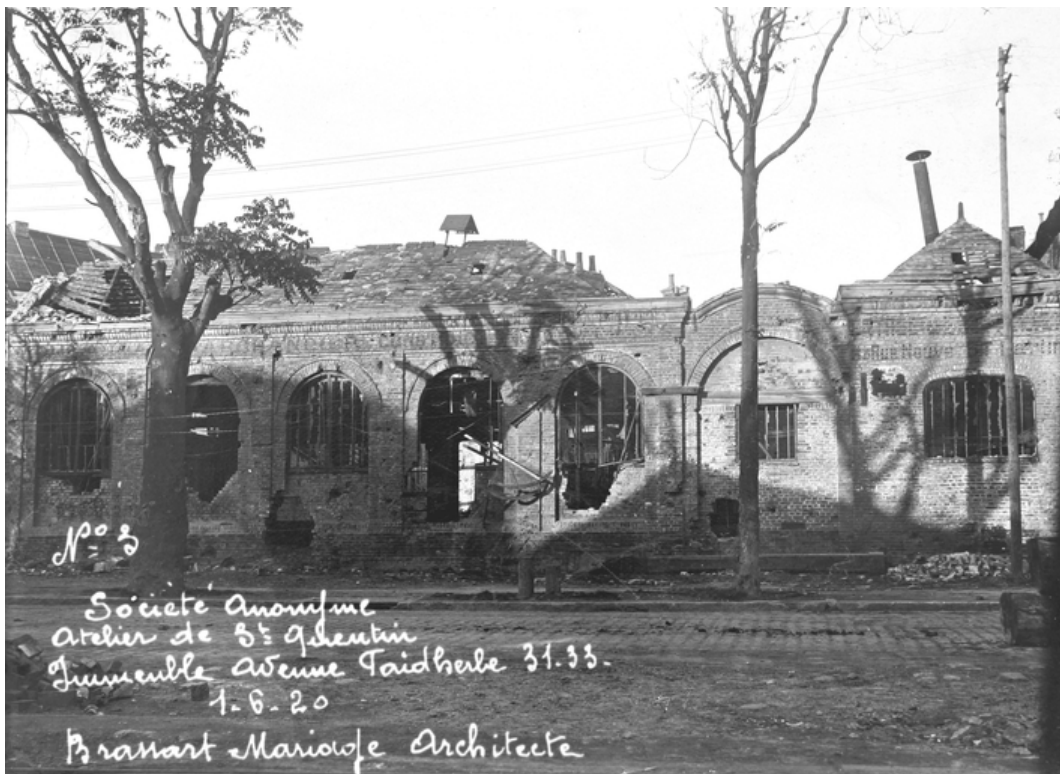 Rue Neuve
N° 3
Société Anonyme
Atelier de St Quentin
Immeuble Avenue Faidherbe 31-33-
1-6-20
Brassart Mariage Architecte